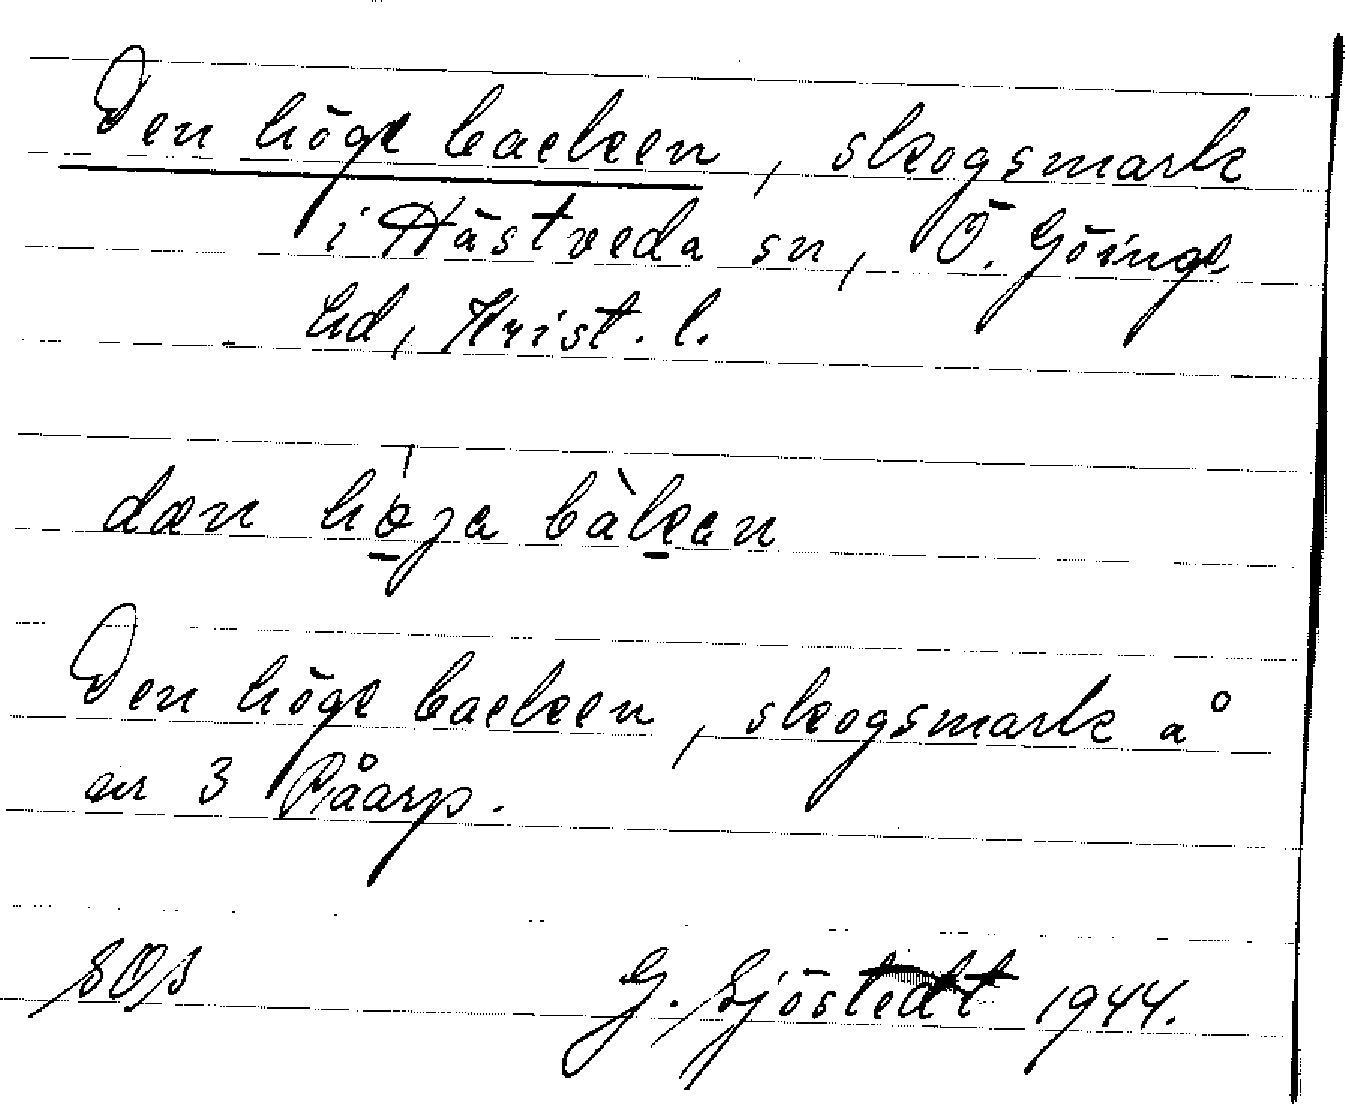 Den höge backen, skogsmark
i Hästveda sn, Ö. Göinge
hd, Krist. l.
dæn hø̱ja bàḵan
Den höge backen, skogsmark å
nr 3 Påarp.
SOS
G. Sjöstedt 1944.